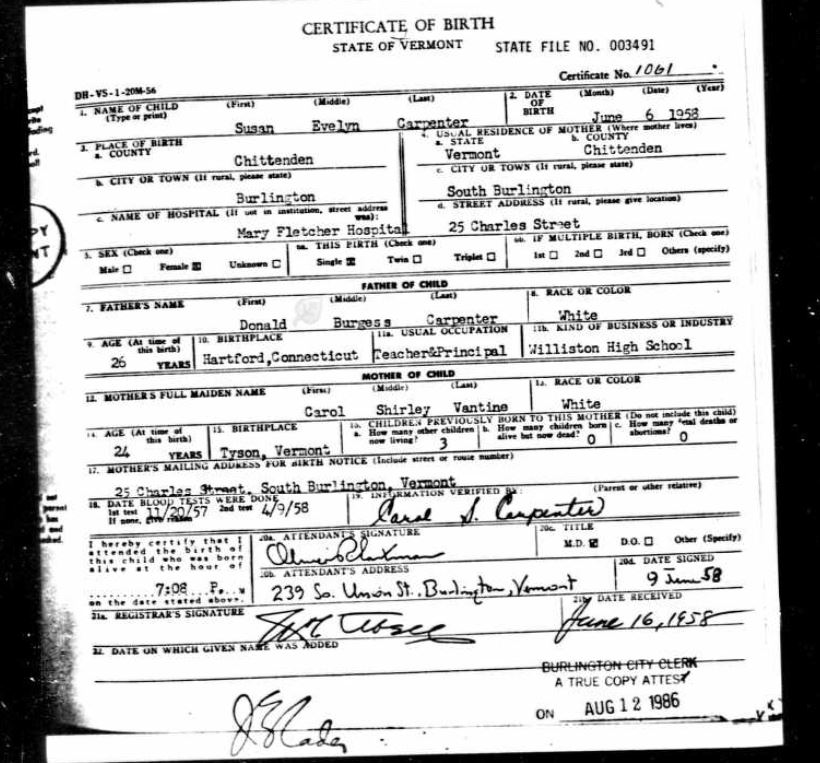 CERTIFICATE OF BIRTH
STATE OF VERMONT STATE FILE NO. 003491
Certificate No. 1061
DH-VS-1-20M-56
1. NAME OF CHILD (Type or print) (First) (Middle) (Last) 2. DATE OF BIRTH (Month) (Date) (Year)
Susan Evelyn Carpenter June 6 1958
3. PLACE OF BIRTH 4. USUAL RESIDENCE OF MOTHER (Where mother lives)
a. COUNTY a. STATE b. COUNTY
Chittenden Vermont Chittenden
b. CITY OR TOWN (If rural, please state) c. CITY OR TOWN (If rural, please state)
Burlington South Burlington
c. NAME OF HOSPITAL (If not in institution, street address was): d. STREET ADDRESS (If rural, please give location)
Mary Fletcher Hospital 25 Charles Street
5. SEX (Check one) 6a. THIS BIRTH (Check one) 6b. IF MULTIPLE BIRTH, BORN (Check one)
Male Female Unknown Single Twin Triplet 1st 2nd 3rd Others (specify)
FATHER OF CHILD
7. FATHER'S NAME (First) (Middle) (Last) 8. RACE OR COLOR
Donald Burgess Carpenter White
9. AGE (At time of this birth) 10. BIRTHPLACE 11a. USUAL OCCUPATION 11b. KIND OF BUSINESS OR INDUSTRY
26 YEARS Hartford,Connecticut Teacher&Principal Williston High School
MOTHER OF CHILD
12. MOTHER'S FULL MAIDEN NAME (First) (Middle) (Last) 13. RACE OR COLOR
Carol Shirley Vantine White
14. AGE (At time of this birth) 15. BIRTHPLACE 16. CHILDREN PREVIOUSLY BORN TO THIS MOTHER (Do not include this child)
a. How many other children now living? 3 b. How many children born alive but now dead? 0 c. How many fetal deaths or abortions? 0
24 YEARS Tyson, Vermont
17. MOTHER'S MAILING ADDRESS FOR BIRTH NOTICE (Include street or route number)
25 Charles Street, South Burlington, Vermont
18. DATE BLOOD TESTS WERE DONE 19. INFORMATION VERIFIED BY: (Parent or other relative)
1st test 11/20/57 2nd test 4/9/58 Carol S. Carpenter
If none, give reason
I hereby certify that I attended the birth of this child who was born alive at the hour of 20a. ATTENDANT'S SIGNATURE 20c. TITLE
M.D. D.O. Other (Specify)
20b. ATTENDANT'S ADDRESS 20d. DATE SIGNED
7:08 P. M 239 So. Union St., Burlington, Vermont 9 June 58
on the date stated above.
21a. REGISTRAR'S SIGNATURE 21b. DATE RECEIVED
June 16, 1958
22. DATE ON WHICH GIVEN NAME WAS ADDED
BURLINGTON CITY CLERK
A TRUE COPY ATTEST
ON AUG 12 1986